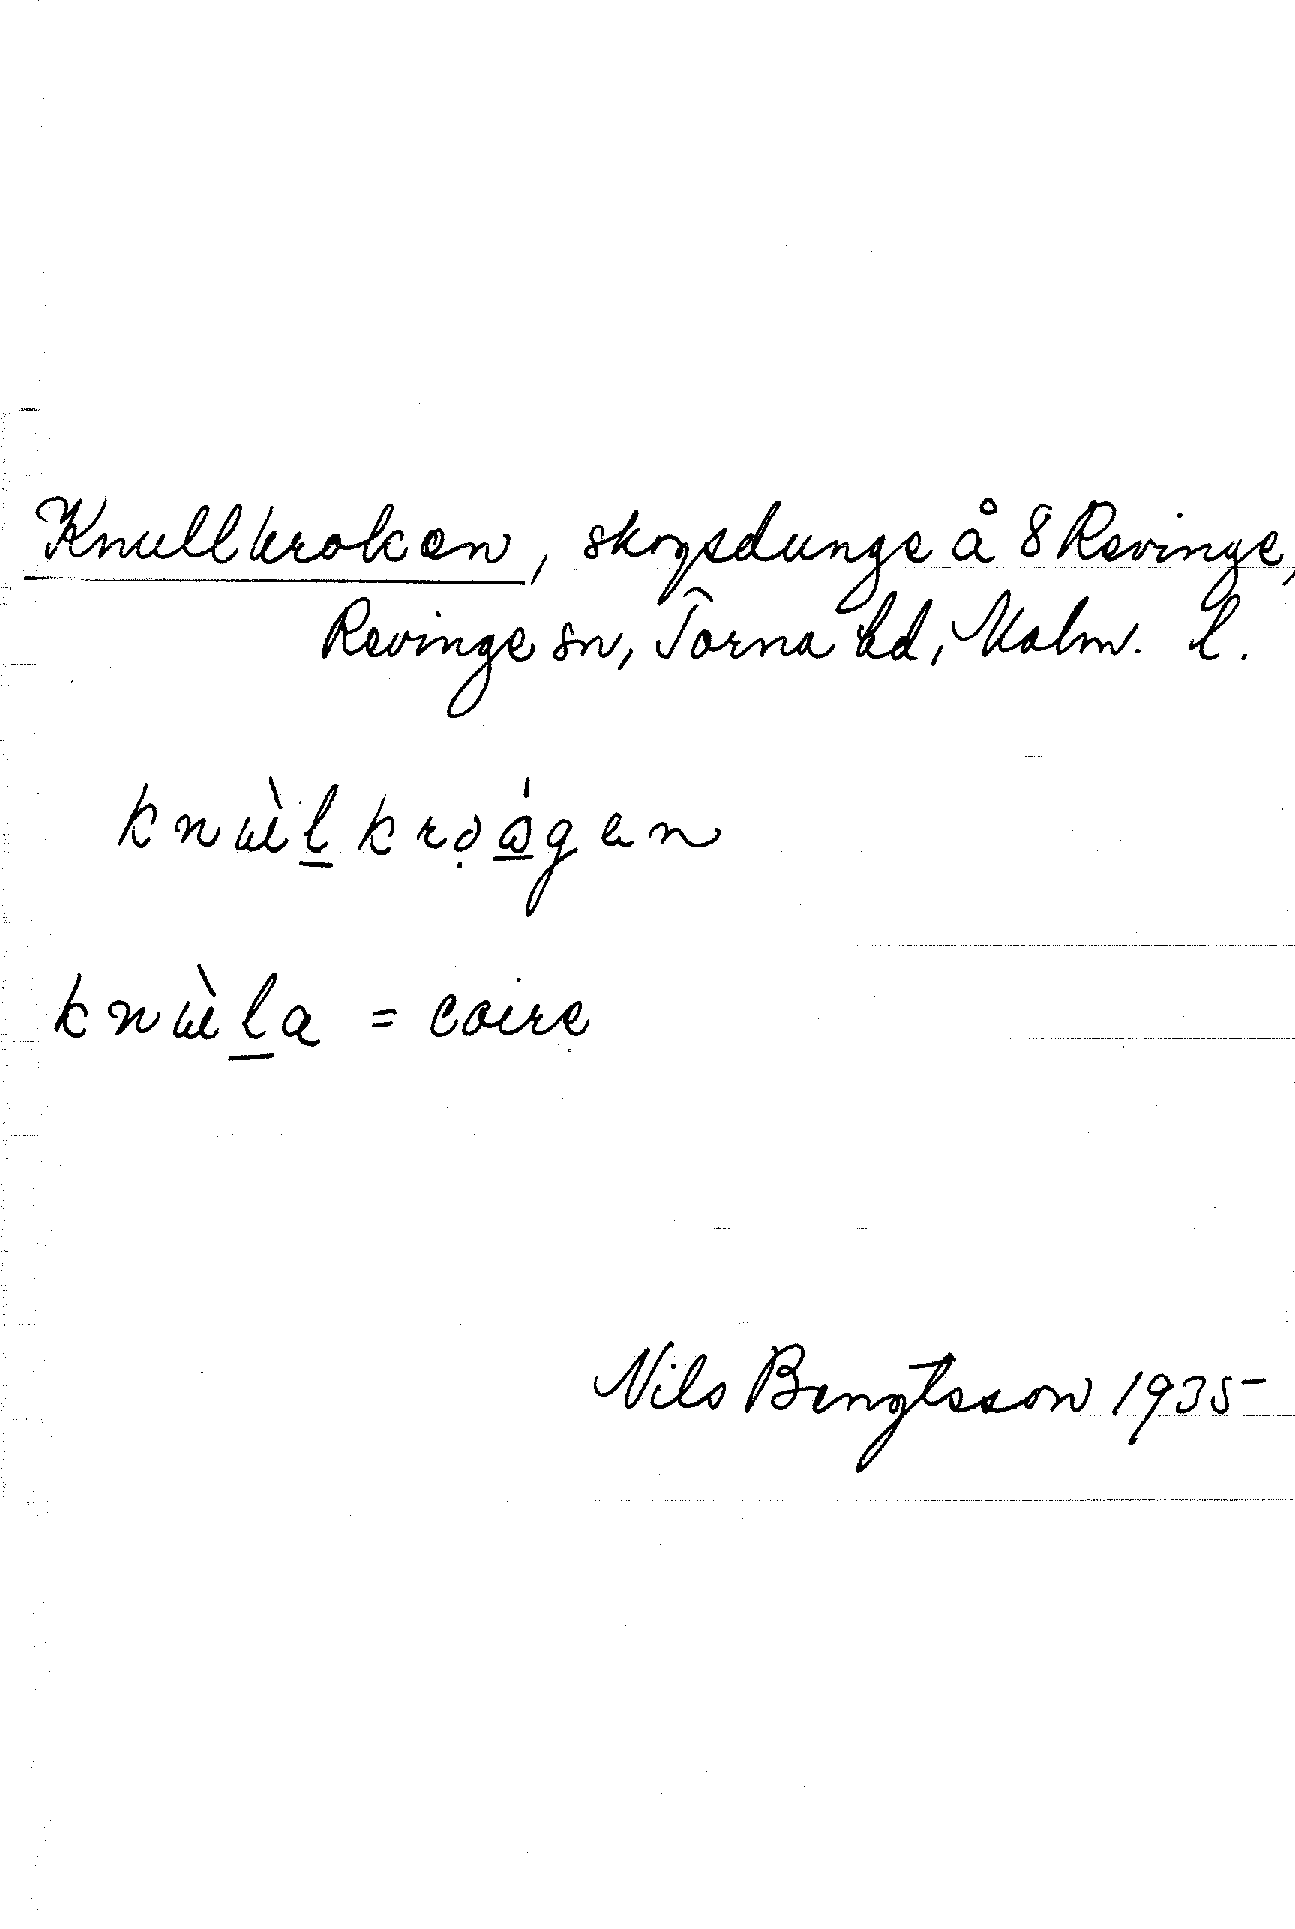 Knullkroken, skogsdunge å 8 Revinge,
Revinge sn, Torna hd, Malm. l.
knɯ̀l̲krọɷ̲́gen
knɯ̀l̲a = coire
Nils Bengtsson 1935